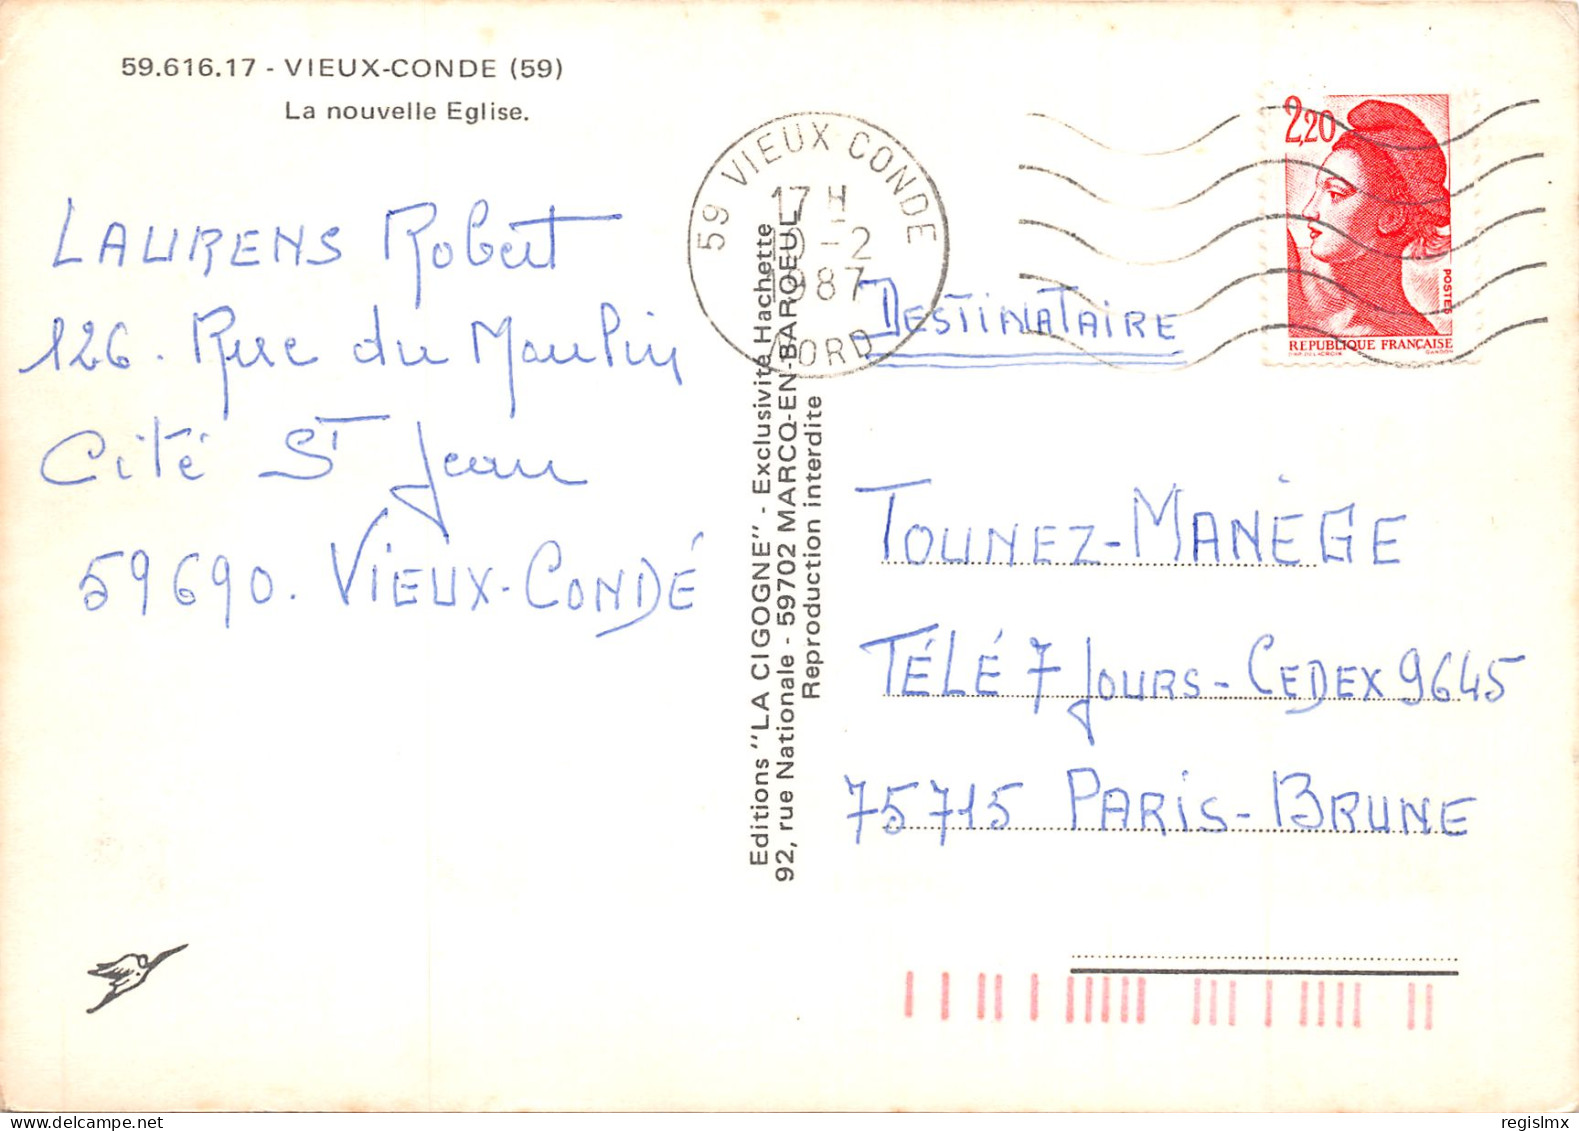 59.616.17 - VIEUX-CONDE (59)
La nouvelle Eglise.
LAURENS Robert
126. Rue du Moulin
Cité St Jean
59690. VIEUX-CONDÉ
Editions "LA CIGOGNE" - Exclusivité Hachette
92, rue Nationale - 59702 MARCQ-EN-BAROEUL
Reproduction interdite
59 VIEUX CONDE
17H
9-2
1987
NORD
2,20
POSTES
REPUBLIQUE FRANÇAISE
GANDON
DESTINATAIRE
TOUNEZ-MANÈGE
TÉLÉ 7 JOURS - CEDEX 9645
75715 PARIS-BRUNE
regislmx